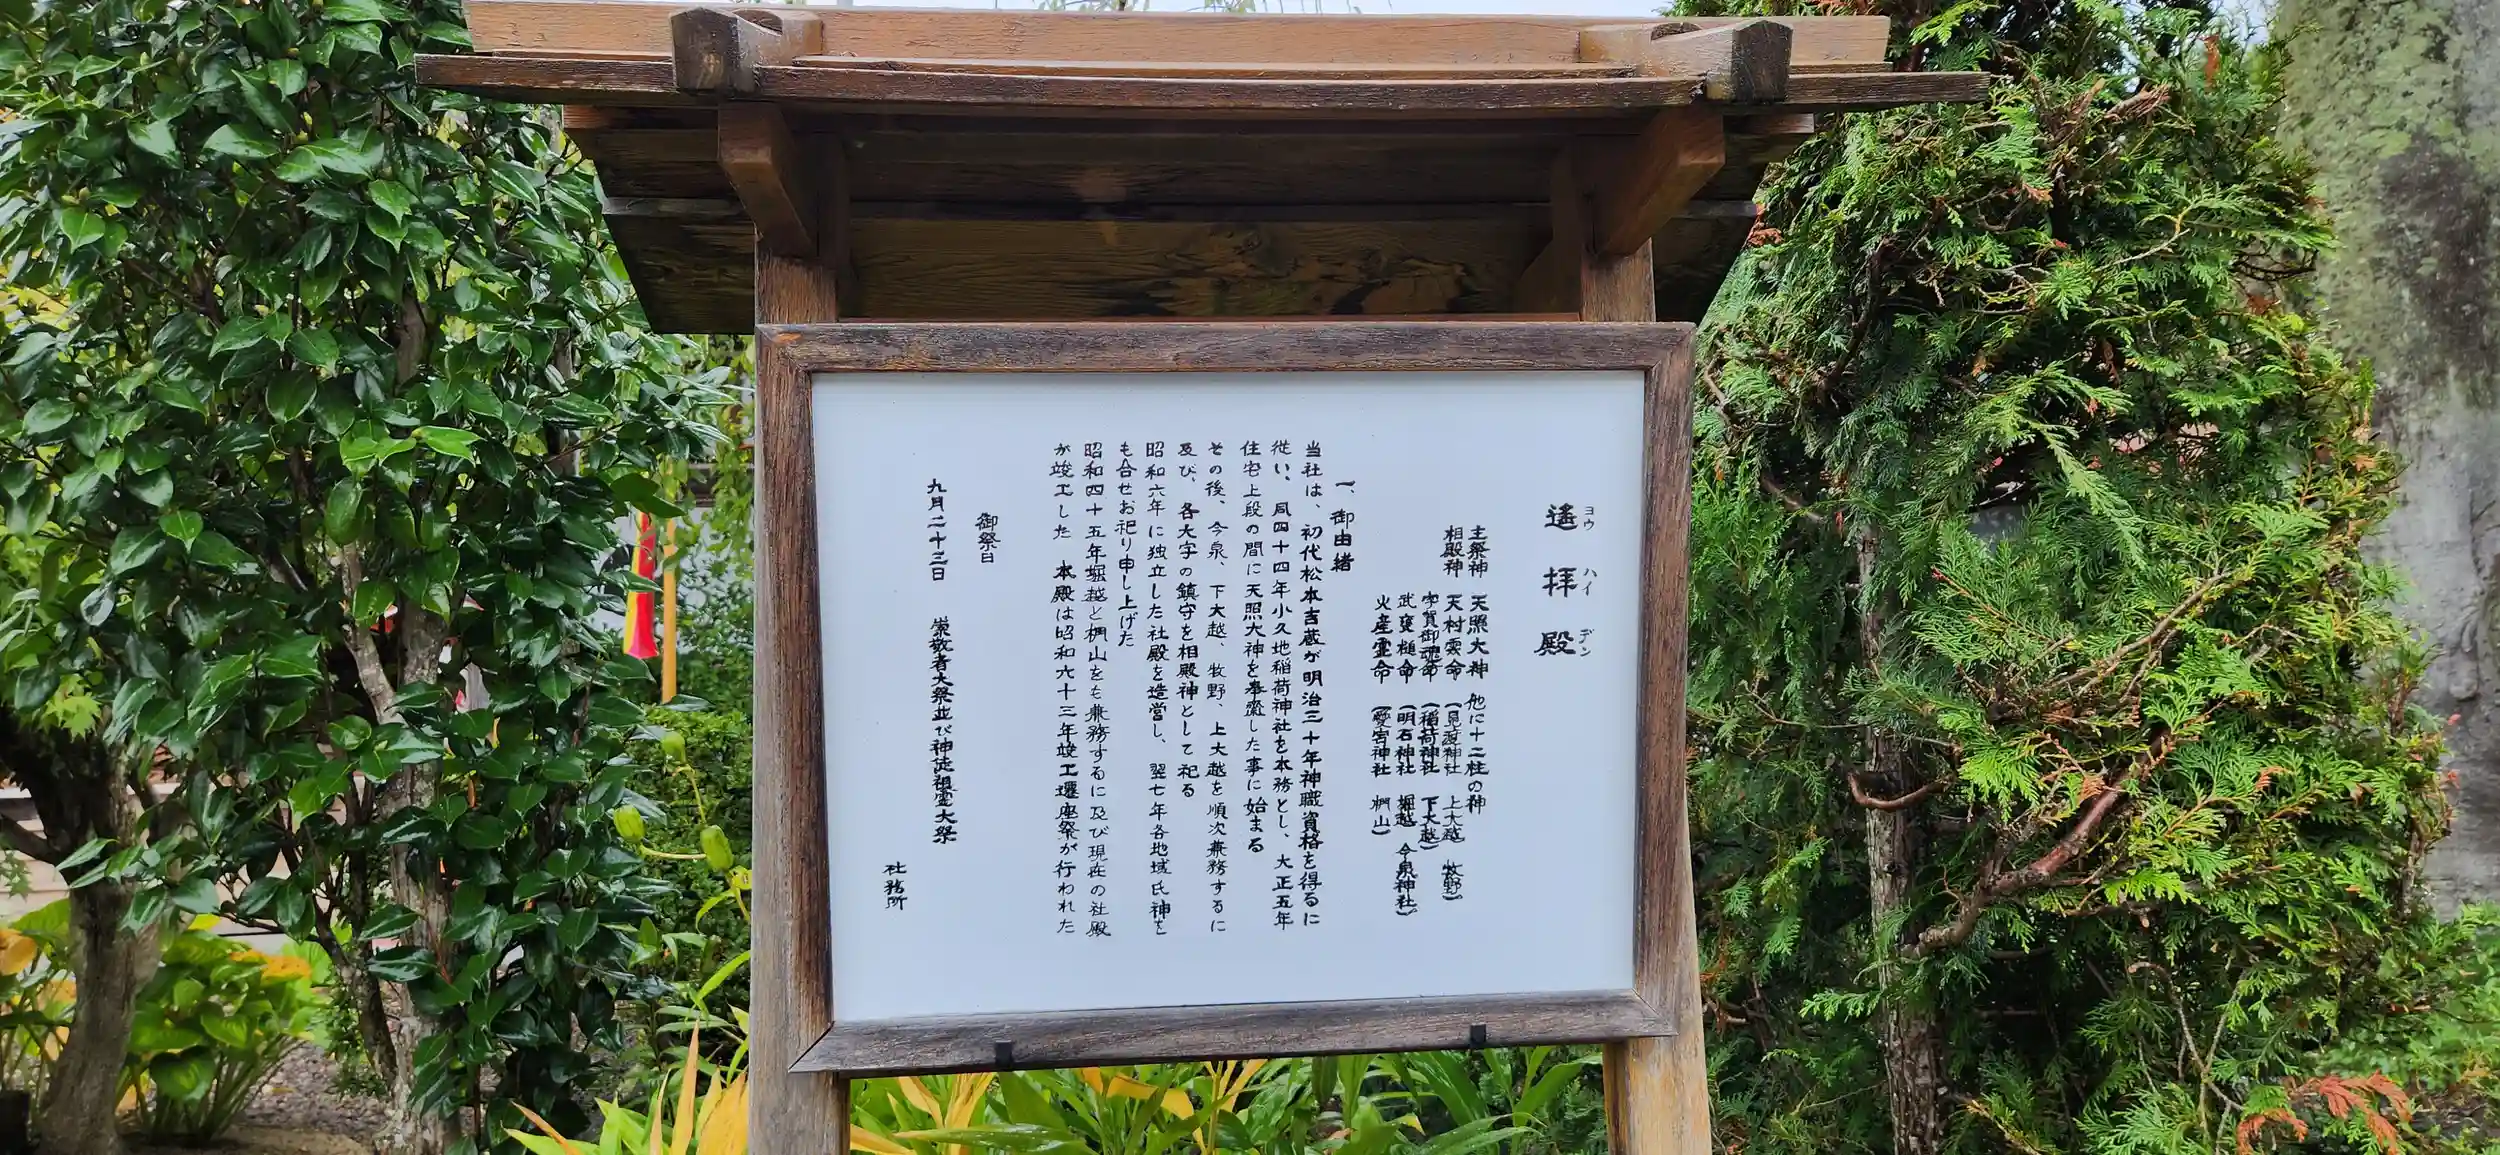 遙拝殿
ヨウハイデン
主祭神 天照大神 他に十二柱の神
相殿神 天村雲命 (見渡神社 上大越 牧野)
宇賀御魂命 (稲荷神社 下大越)
武甕槌命 (明石神社 堀越 今泉神社)
火産霊命 (愛宕神社 椚山)
一、御由緒
当社は、初代松本吉蔵が明治三十年神職資格を得るに
従い、同四十四年小久地稲荷神社を本務とし、大正五年
住宅上段の間に天照大神を奉齋した事に始まる
その後、今泉、下大越、牧野、上大越を順次兼務するに
及び、各大字の鎮守を相殿神として祀る
昭和六年に独立した社殿を造営し、翌七年各地域氏神を
も合せお祀り申し上げた
昭和四十五年堀越と椚山をも兼務するに及び現在の社殿
が竣工した 本殿は昭和六十三年竣工遷座祭が行われた
御祭日
九月二十三日 崇敬者大祭並び神徒祖霊大祭
社務所